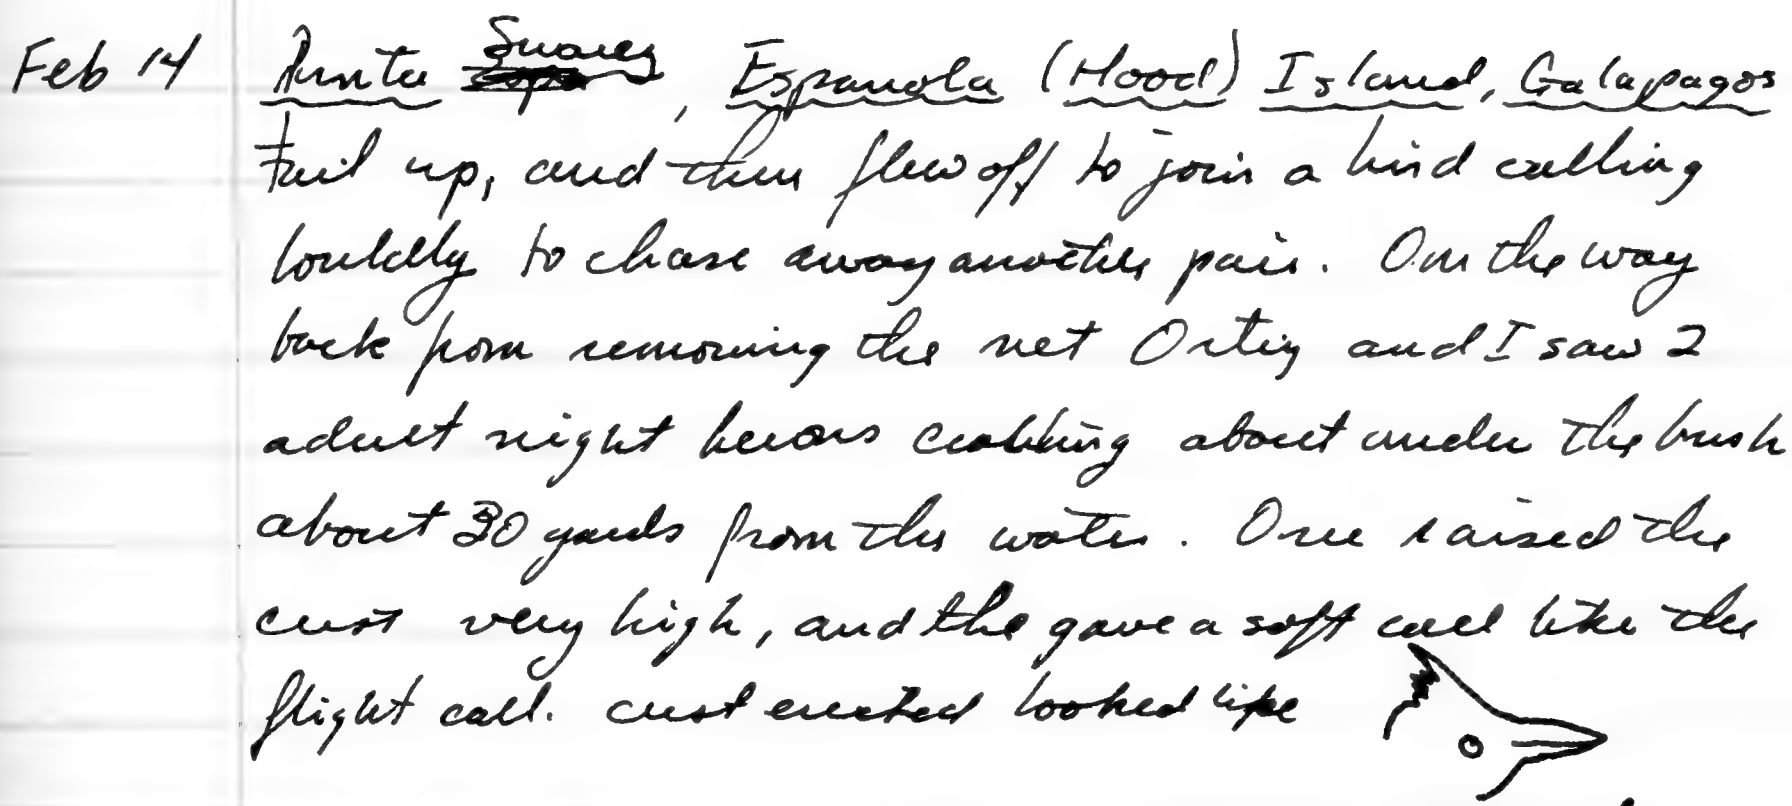 Feb 14 Punta Suarez, Espanola (Hood) Island, Galapagos
Tail up, and then flew off to join a bird calling
loudlly to chase away another pair. On the way
back from removing the net Ortiz and I saw 2
adult night herons crabbing about under the brush
about 30 yards from the water. One raised the
crest very high, and the gave a soft call like the
flight call. crest erected looked like